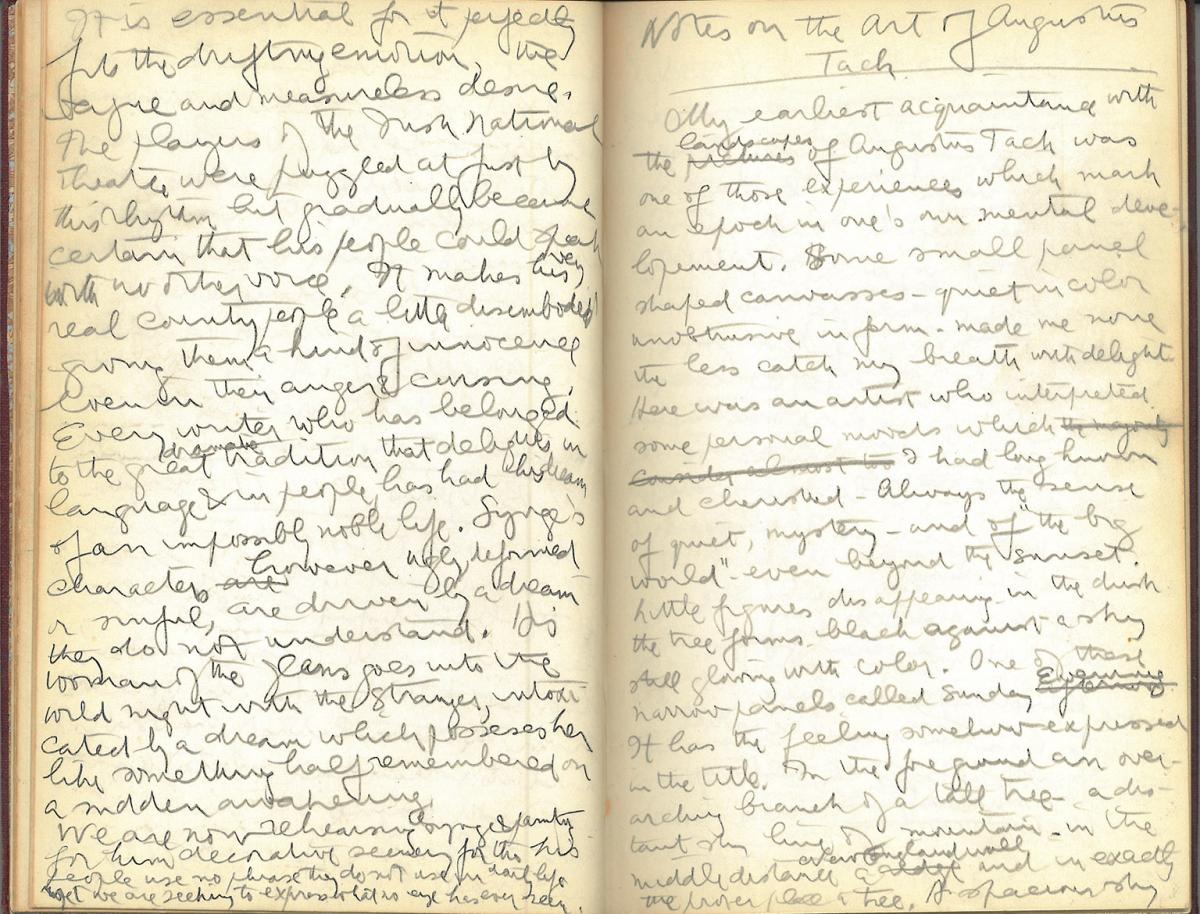 It is essential for it perfectly
fits the drifting emotion, the
vague and measureless desire.
The players of the Irish National
Theatre were puzzled at first by
this rhythm but gradually became
certain that his people could speak
with no other voice. It makes his
very
real country people a little disembodied
giving them a kind of innocence
even in their anger & cursing.
Every writer who has belonged
dramatic
to the great tradition that delights in
language & in people, has had this dream
of an impossibly noble life. Synge's
characters are however ugly, deformed
or sinful, are driven by a dream
they do not understand. His
woman of the Glens goes into the
wild night with the Stranger, intoxi
cated by a dream which possesses her
like something half remembered on
a sudden awakening.
We are now rehearsing
for him decorative scenery for tho his
people use no phrase they do not use in daily life
yet we are seeking to express what no eye has ever seen.
Notes on the Art of Augustus
Tack
My earliest acquaintance with
landscapes
the pictures of Augustus Tack was
one of those experiences which mark
an epoch in one's own mental deve-
lopement. Some small panel
shaped canvasses - quiet in color
unobtrusive in form - made me none
the less catch my breath with delight.
Here was an artist who interpreted
some personal moods which the majority
consider almost too I had long known
and cherished - Always the sense
of quiet, mystery - and of "the big
world" - even beyond the "sunset".
Little figures disappearing in the dusk
the tree forms black against a sky
still glowing with color. One of these
narrow panels called Sunday Evening
It has the feeling somehow expressed
in the title. In the foreground an over-
arching branch of a tall tree - a dis-
tant sky line of mountains - in the
a New England wall
middle distance and in exactly
the proper place a tree. A spacious sky